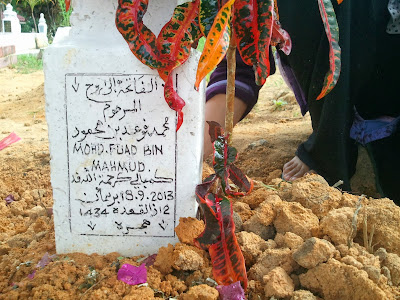 الفاتحة إلى روح
المرحوم
محمد فوءد بن محمود
MOHD. FUAD BIN
MAHMUD
كمبالي كرحمة الله ڤد
19.9.2013
12 ذوالقعدة 1434
هجرة